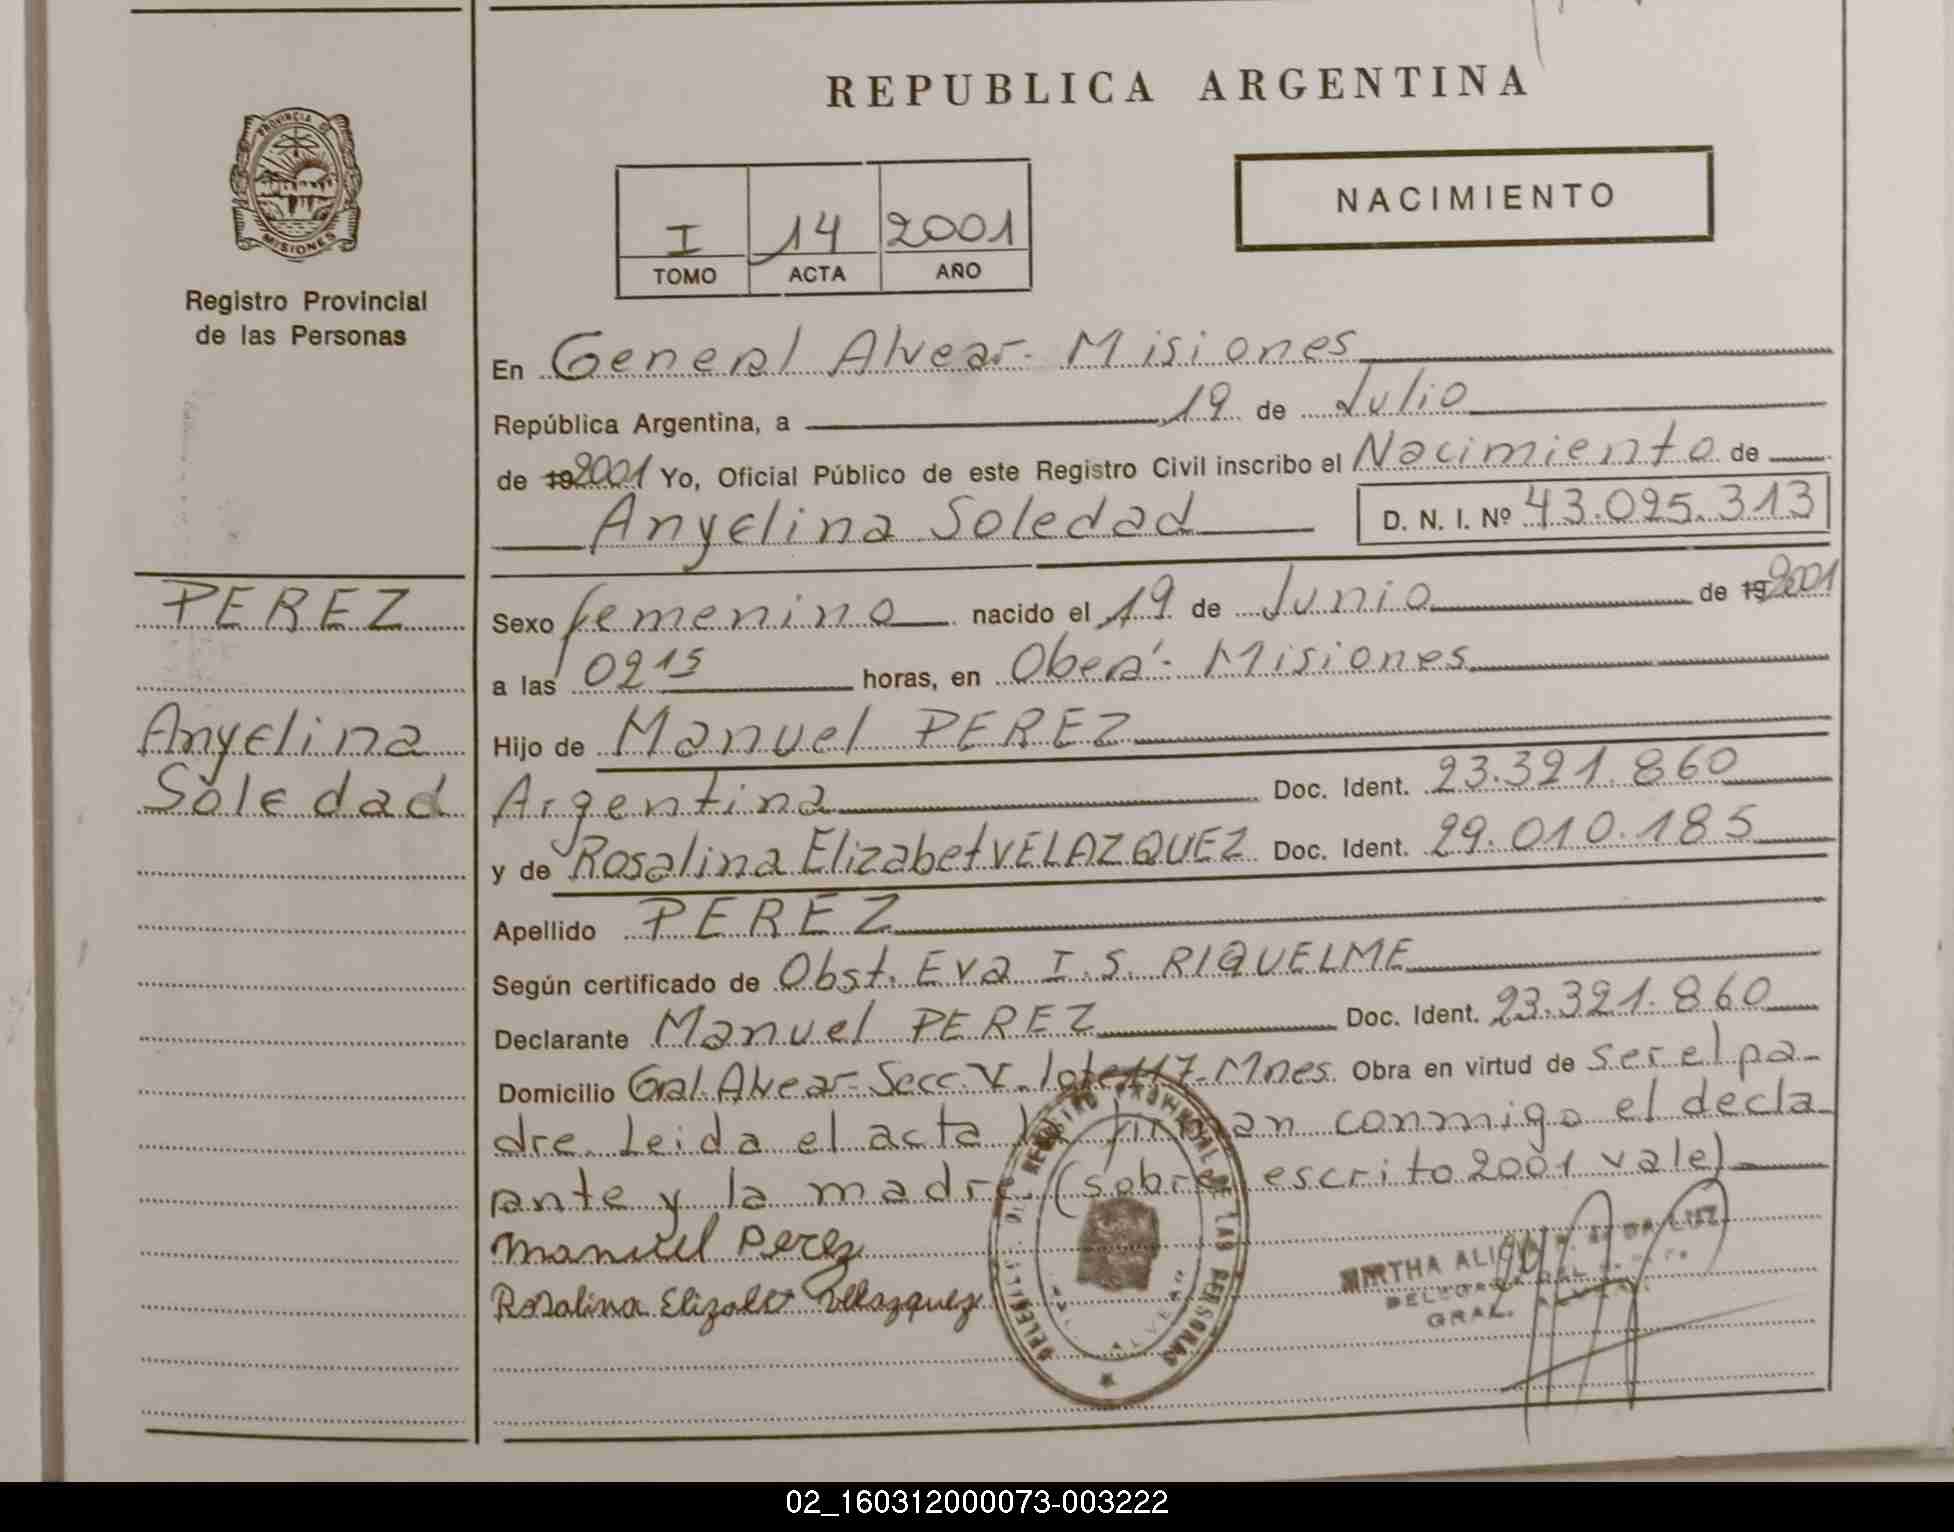 REPUBLICA ARGENTINA
PROVINCIA DE
MISIONES
Registro Provincial
de las Personas
NACIMIENTO
I 14 2001
TOMO ACTA AÑO
En General Alvear - Misiones
República Argentina, a 19 de Julio
de 192001 Yo, Oficial Público de este Registro Civil inscribo el Nacimiento de
Anyelina Soledad D. N. I. Nº 43.095.313
PEREZ
Anyelina
Soledad
Sexo femenino nacido el 19 de Junio de 192001
a las 0215 horas, en Oberá - Misiones
Hijo de Manuel PEREZ
Argentina Doc. Ident. 23.321.860
y de Rosalina Elizabet VELAZQUEZ Doc. Ident. 29.010.185
Apellido PEREZ
Según certificado de Obst. Eva I. S. RIQUELME
Declarante Manuel PEREZ Doc. Ident. 23.321.860
Domicilio Gral. Alvear - Secc. V. lote 117 - Mnes. Obra en virtud de ser el pa-
dre. Leida el acta la firman conmigo el decla
ante y la madre. (sobre escrito 2001 vale)
Manuel Perez
Rosalina Elizabet Velazquez
REGISTRO PROVINCIAL DE LAS PERSONAS
GRAL.
02_160312000073-003222